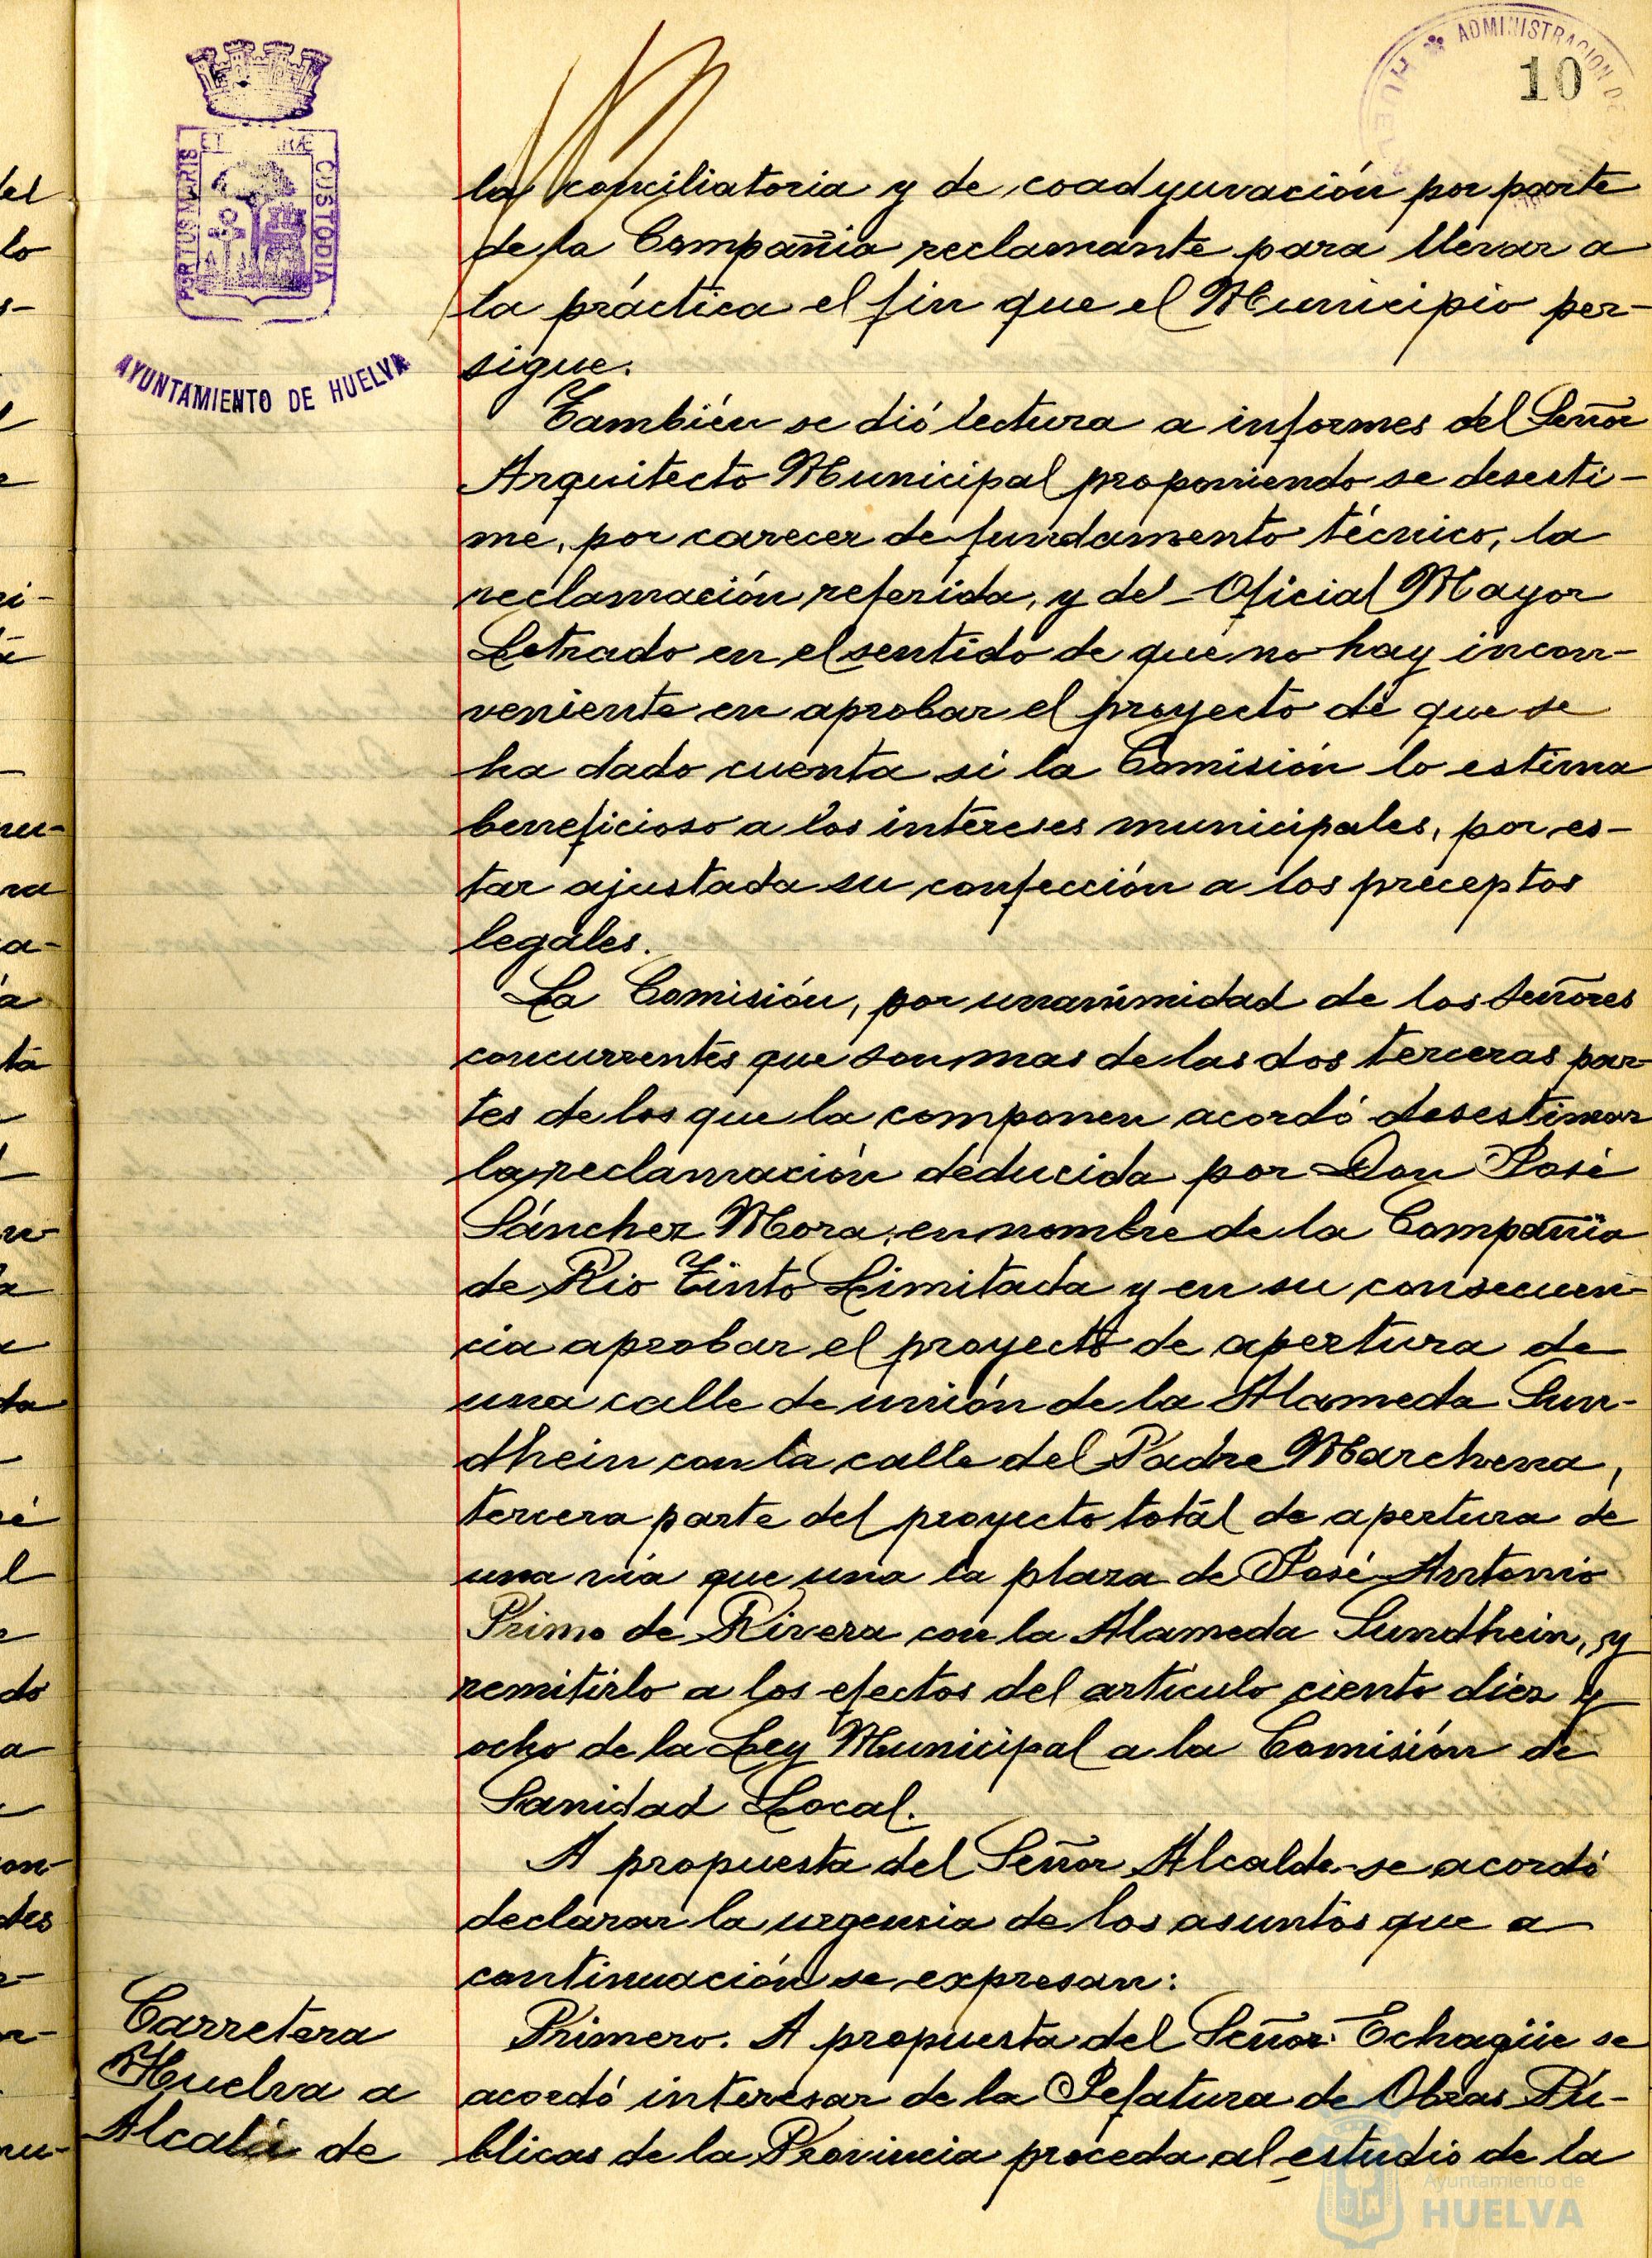 ADMINISTRACION DE
HUELVA
10
PORTUS MARIS ET TERRÆ CUSTODIA
AYUNTAMIENTO DE HUELVA
la conciliatoria y de coadyuvación por parte
de la Compañia reclamante para llevar a
la práctica el fin que el Municipio per-
sigue.
También se dió lectura a informes del Señor
Arquitecto Municipal proponiendo se desesti-
me, por carecer de fundamento técnico, la
reclamación referida, y del Oficial Mayor
Letrado en el sentido de que no hay incon-
veniente en aprobar el proyecto de que se
ha dado cuenta si la Comisión lo estima
beneficioso a los intereses municipales, por es-
tar ajustada su confección a los preceptos
legales.
La Comisión, por unanimidad de los Señores
concurrentes que son mas de las dos terceras par-
tes de los que la componen acordó desestimar
la reclamación deducida por Don José
Sánchez Mora, en nombre de la Compañia
de Rio Tinto Limitada y en su consecuen-
cia aprobar el proyecto de apertura de
una calle de unión de la Alameda Sun-
dhein con la calle del Padre Marchena,
tercera parte del proyecto totál de apertura de
una via que una la plaza de José Antonio
Primo de Rivera con la Alameda Sundhein, y
remitirlo a los efectos del articulo ciento diez y
ocho de la Ley Municipal a la Comisión de
Sanidad Local.
A propuesta del Señor Alcalde se acordó
declarar la urgencia de los asuntos que a
continuación se expresan:
Carretera
Huelva a
Alcalá de
Primero. A propuesta del Señor Echagüe se
acordó interesar de la Jefatura de Obras Pú-
blicas de la Provincia proceda al estudio de la
Ayuntamiento de
HUELVA